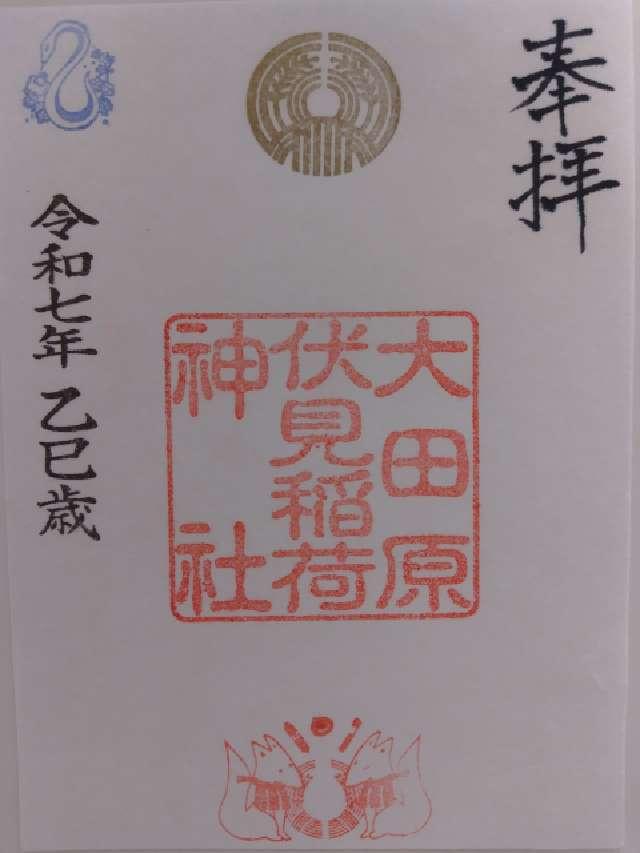 奉拝
大田原
伏見稲荷
神社
令和七年 乙巳歳